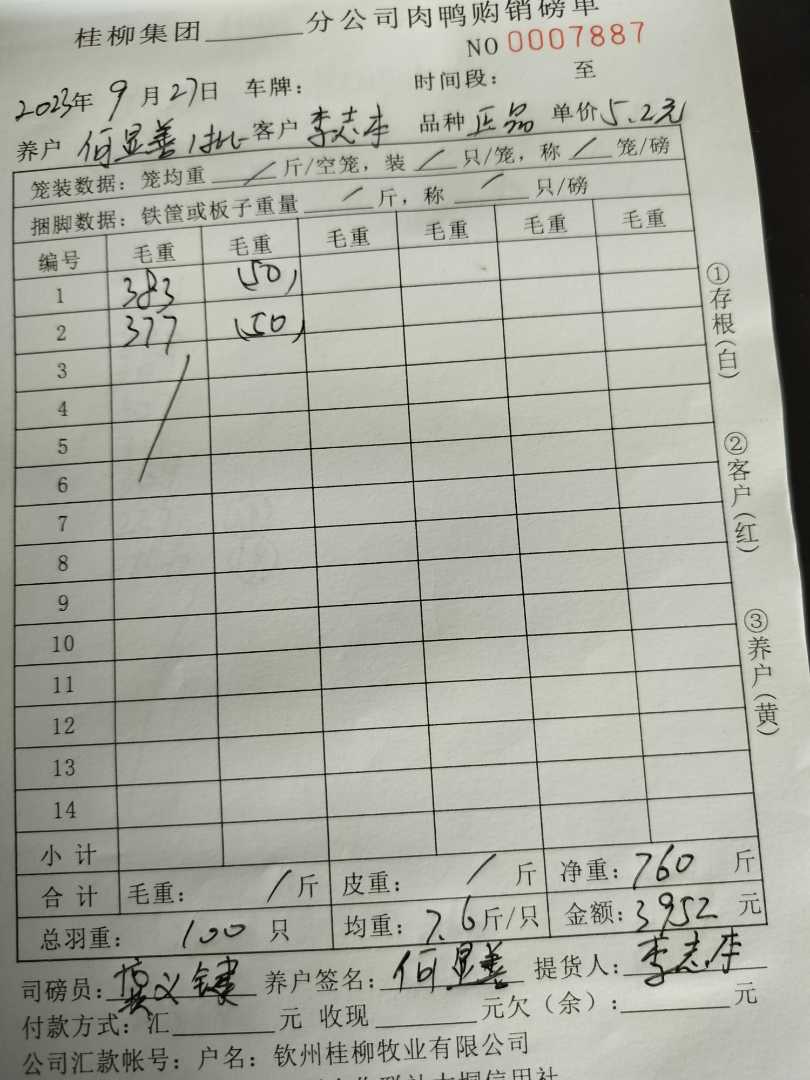 桂柳集团______分公司肉鸭购销磅单
NO 0007887
2023年9月27日 车牌: 时间段: 至
养户 何显善1批 客户 李志本 品种 正品 单价 5.2元
笼装数据: 笼均重 / 斤/空笼, 装 / 只/笼, 称 / 笼/磅
捆脚数据: 铁筐或板子重量 / 斤, 称 / 只/磅
编号 毛重 毛重 毛重 毛重 毛重 毛重
1 383 (50)
2 377 (50)
3
4
5
6
7
8
9
10
11
12
13
14
小计
合计 毛重: / 斤 皮重: / 斤 净重: 760 斤
总羽重: 100 只 均重: 7.6 斤/只 金额: 3952 元
司磅员: 养户签名: 何显善 提货人: 李志本
付款方式: 汇______元 收现______元欠(余):______元
公司汇款帐号: 户名: 钦州桂柳牧业有限公司
①存根(白)
②客户(红)
③养户(黄)